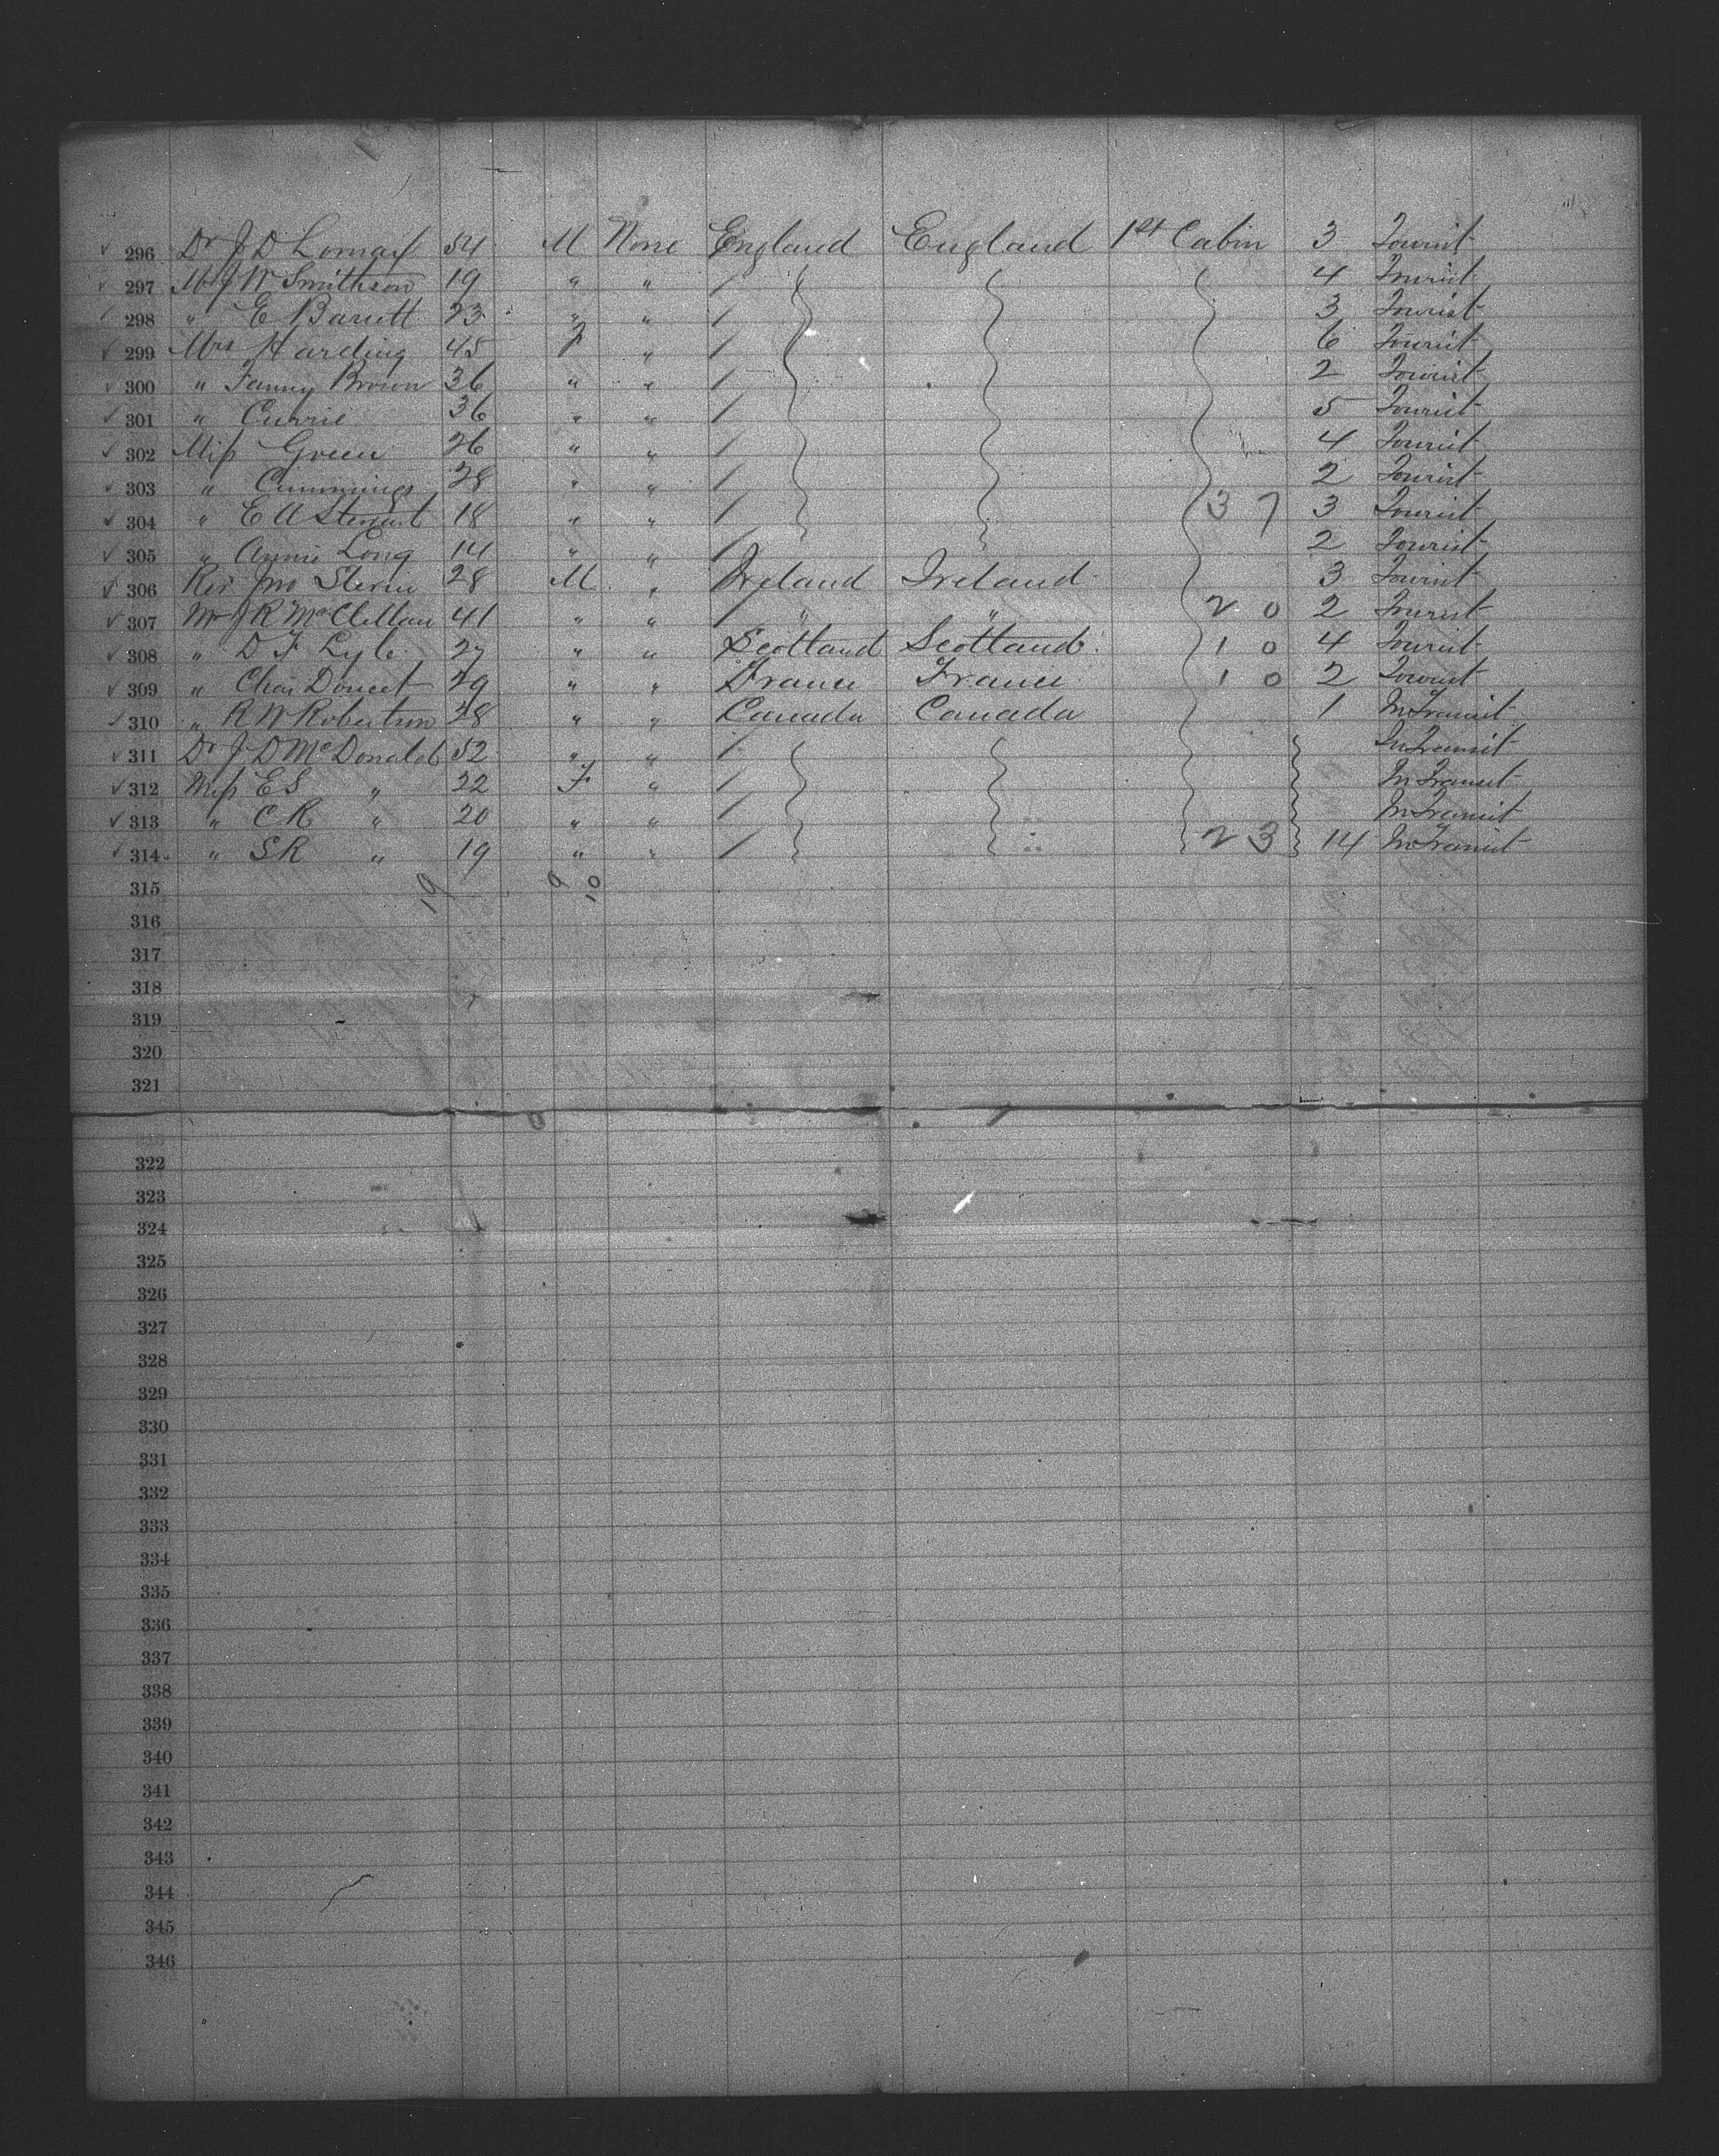 296 Dr J D Lomax 54 M None England England 1st Cabin 3 Tourist
297 Mr J W Smithson 19 " " / 4 Tourist
298 " E Barrett 23 " " / 3 Tourist
299 Mrs Harding 45 F " / 6 Tourist
300 " Fanny Brown 36 " " / 2 Tourist
301 " Currie 36 " " / 5 Tourist
302 Miss Green 26 " " / 4 Tourist
303 " Cummings 28 " " / 2 Tourist
304 " E A Stewart 18 " " / 3 7 3 Tourist
305 " Annie Long 14 " " / 2 Tourist
306 Rev Jno 28 M " Ireland Ireland 3 Tourist
307 Mr J R McClellan 41 " " / " " 2 0 2 Tourist
308 " D F Lyle 27 " " Scotland Scotland 1 0 4 Tourist
309 " Chas Doucet 29 " " France France 1 0 2 Tourist
310 " R W Robertson 28 " " Canada Canada 1 In Transit
311 Dr J D McDonald 52 " " / In Transit
312 Miss E S " 22 F " / In Transit
313 " C R " 20 " " / In Transit
314 " S R " 19 " " / 2 3 14 In Transit
315 19 9 10
316
317
318
319
320
321
322
323
324
325
326
327
328
329
330
331
332
333
334
335
336
337
338
339
340
341
342
343
344
345
346